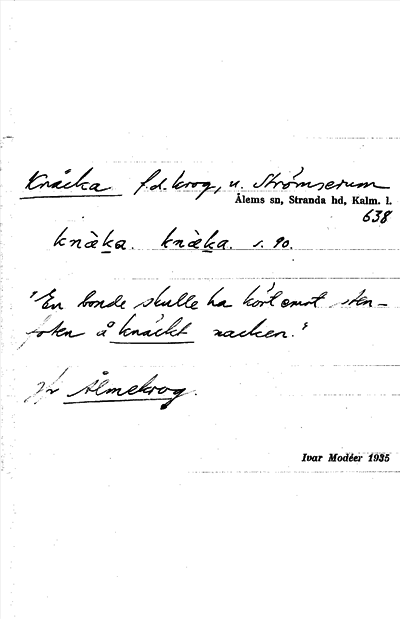 Knäcka f.d. krog, u. Strömserum
Ålems sn, Stranda hd, Kalm. l.
638
knàka. knàka. s. 90.
"En bonde skulle ha kört emot sten-
foten å knäckt nacken."
Jfr Ålmekrog.
Ivar Modéer 1935